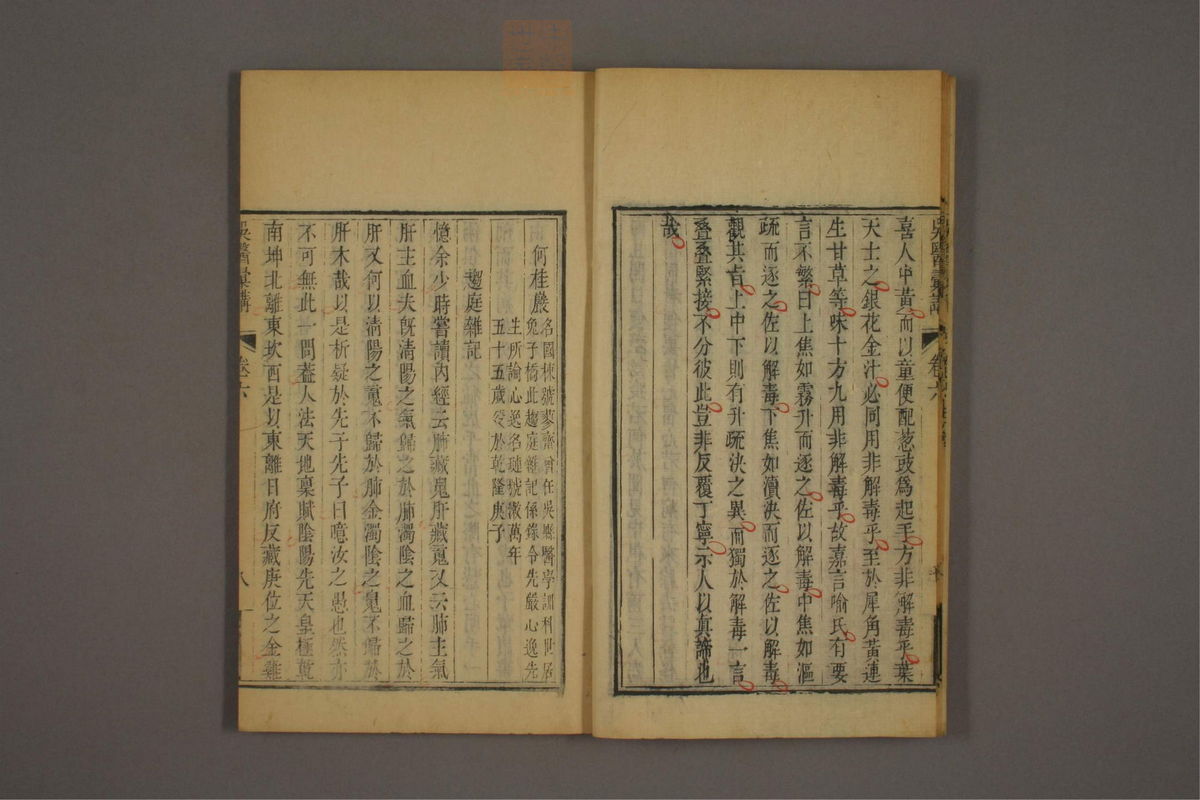 喜人中黃而以童便配葱豉爲起手方非解毒乎葉
天士之銀花金汁必同用非解毒乎至於犀角黃連
生甘草等味十方九用非解毒乎故嘉言喻氏有要
言不繁曰上焦如霧升而逐之佐以解毒中焦如漚
疏而逐之佐以解毒下焦如瀆決而逐之佐以解毒
觀其旨上中下則有升疏決之異而獨於解毒一言
叠叠緊接不分彼此豈非反覆丁寧示人以真諦也
哉
吳醫彙講
卷六
何桂巖
名國棟號蓼齋曾任吳縣醫學訓科世居
兔子橋此趨庭雜記係錄令先嚴心逸先
生所論心逸名璉號澂萬年
五十五歲歿於乾隆庚子
趨庭雜記
憶余少時嘗讀內經云肺藏魄肝藏䰟又云肺主氣
肝主血夫旣清陽之氣歸之於肺濁陰之血歸之於
肝又何以清陽之䰟不歸於肺金濁陰之魄不歸於
肝木哉以是析疑於先子先子曰噫汝之愚也然亦
不可無此一問葢人法天地稟賦陰陽先天皇極乾
南坤北離東坎西是以東離日府反藏庚位之金雞
吳醫彙講
卷六
八